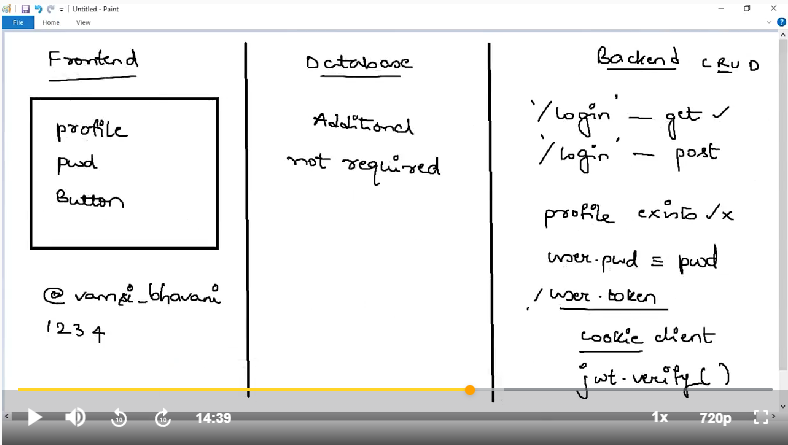 Untitled - Paint
File Home View
Frontend
profile
pwd
Button
@vamsi_bhavani
1234
Database
Additional
not required
Backend CRUD
'/login' — get ✓
'/login' — post
profile exists ✓x
user.pwd ≡ pwd
/ user.token
cookie client
jwt.verify( )
10 10 14:39 1x 720p